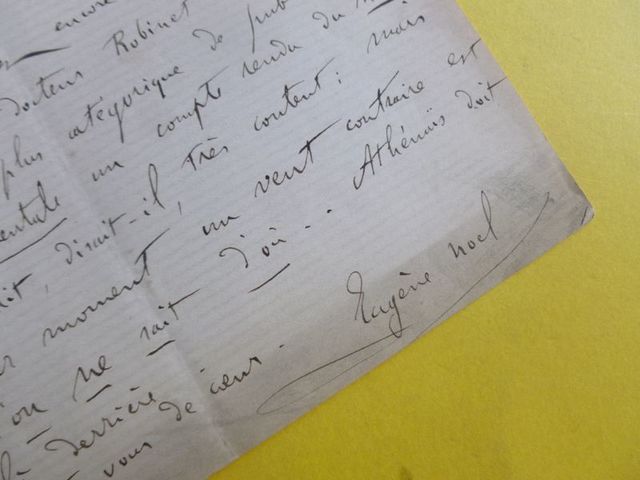 encore
docteur Robinet
plus catégorique de pub
mentale un compte rendu du
dit, disait-il, très content ; mais
moment un vent contraire est
on ne sait d'où . . Athénaïs doit
là derrière
vous de cœur. Eugène Noel